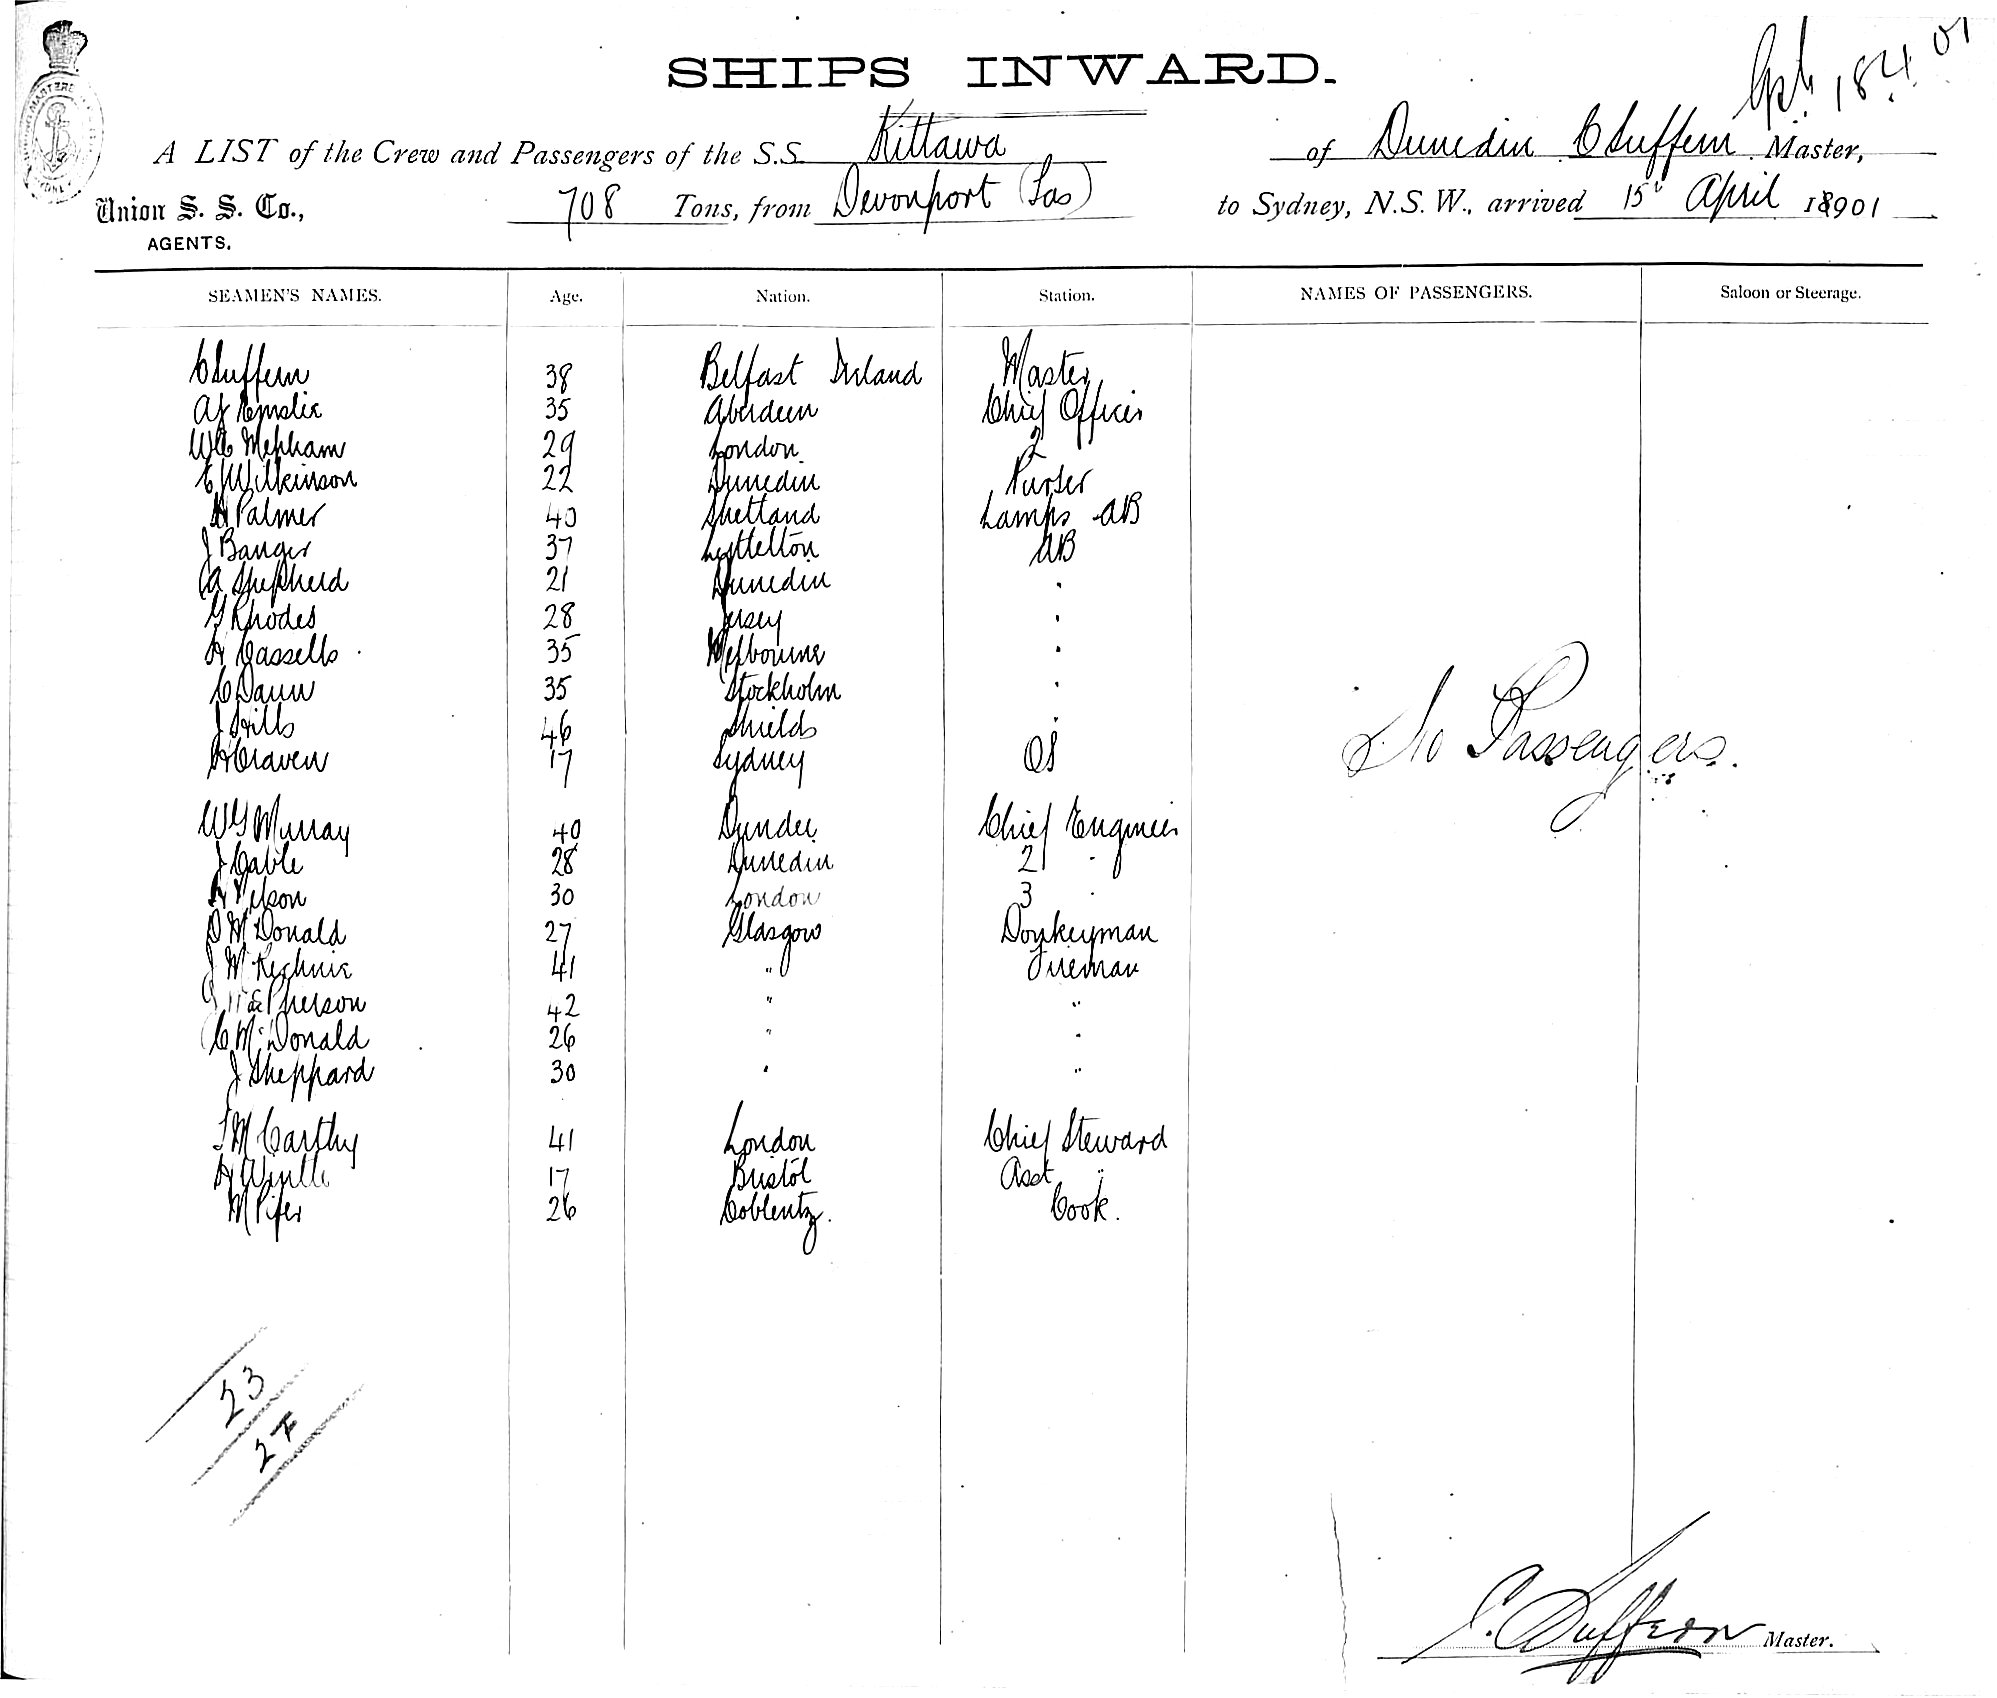 SHIPS INWARD.
18.4.01
A LIST of the Crew and Passengers of the S.S. Kittawa of Dunedin C Suffern Master,
Union S. S. Co., AGENTS. 708 Tons, from Devonport (Tas) to Sydney, N.S.W., arrived 15 April 18901
SEAMEN'S NAMES. Age. Nation. Station. NAMES OF PASSENGERS. Saloon or Steerage.
C Suffern 38 Belfast Ireland Master
AJ Emslie 35 Aberdeen Chief Officer
Mepham 29 London 2
E J Wilkinson 22 Dunedin Purser
H Palmer 40 Shetland Lamps AB
J Banger 37 Lyttelton AB
A Shepherd 21 Dunedin "
G Rhodes 28 Jersey "
H Cassells 35 Melbourne "
C Dann 35 Stockholm "
J Hills 46 Shields "
H Craven 17 Sydney OS
No Passengers.
WG Murray 40 Dundee Chief Engineer
J Cable 28 Dunedin 2 "
H 30 London 3 "
D McDonald 27 Glasgow Donkeyman
J McKechnie 41 " Fireman
MacPherson 42 " "
C McDonald 26 " "
J Sheppard 30 " "
T McCarthy 41 London Chief Steward
H Wintle 17 Bristol Asst "
M Pifer 26 Coblentz. Cook.
23
C. Suffern Master.